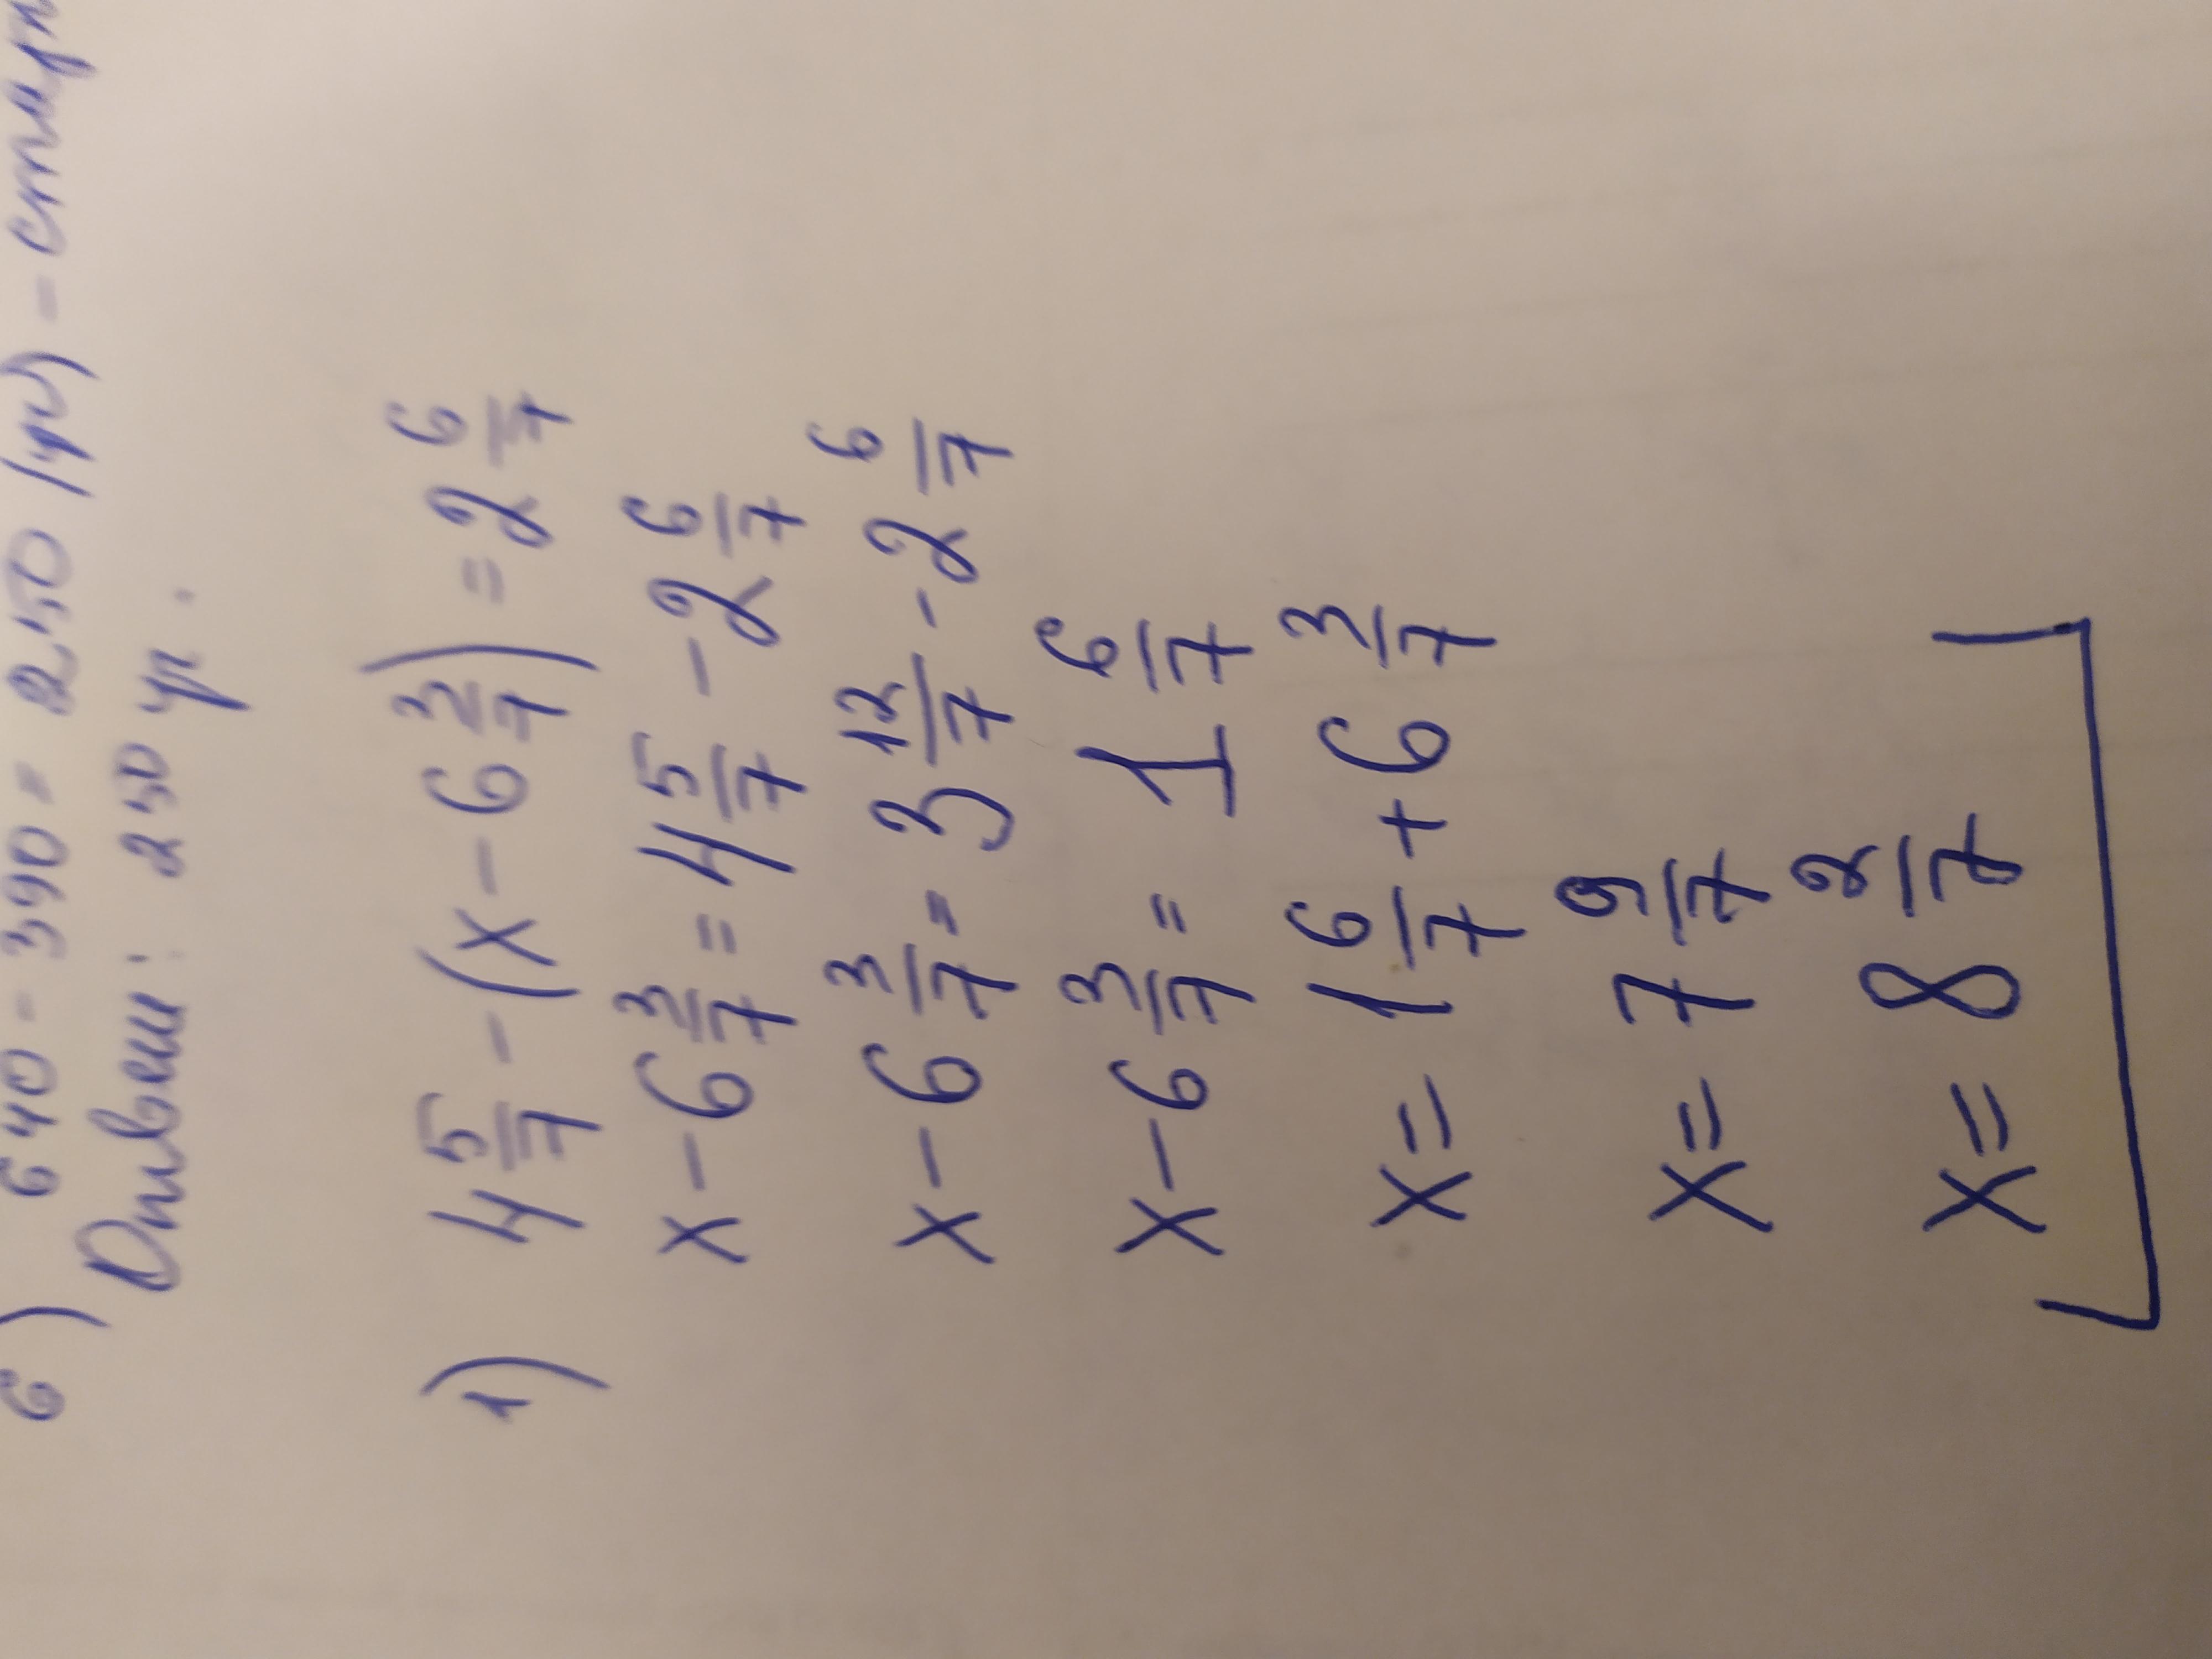 6) 640 - 390 = 250 (уч) -
Ответ: 250 уч.
1) 4 5/7 - (x - 6 3/7) = 2 6/7
x - 6 3/7 = 4 5/7 - 2 6/7
x - 6 3/7 = 3 12/7 - 2 6/7
x - 6 3/7 = 1 6/7
x = 1 6/7 + 6 3/7
x = 7 9/7
x = 8 2/7